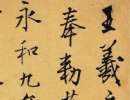 王羲
奉勅
永和九